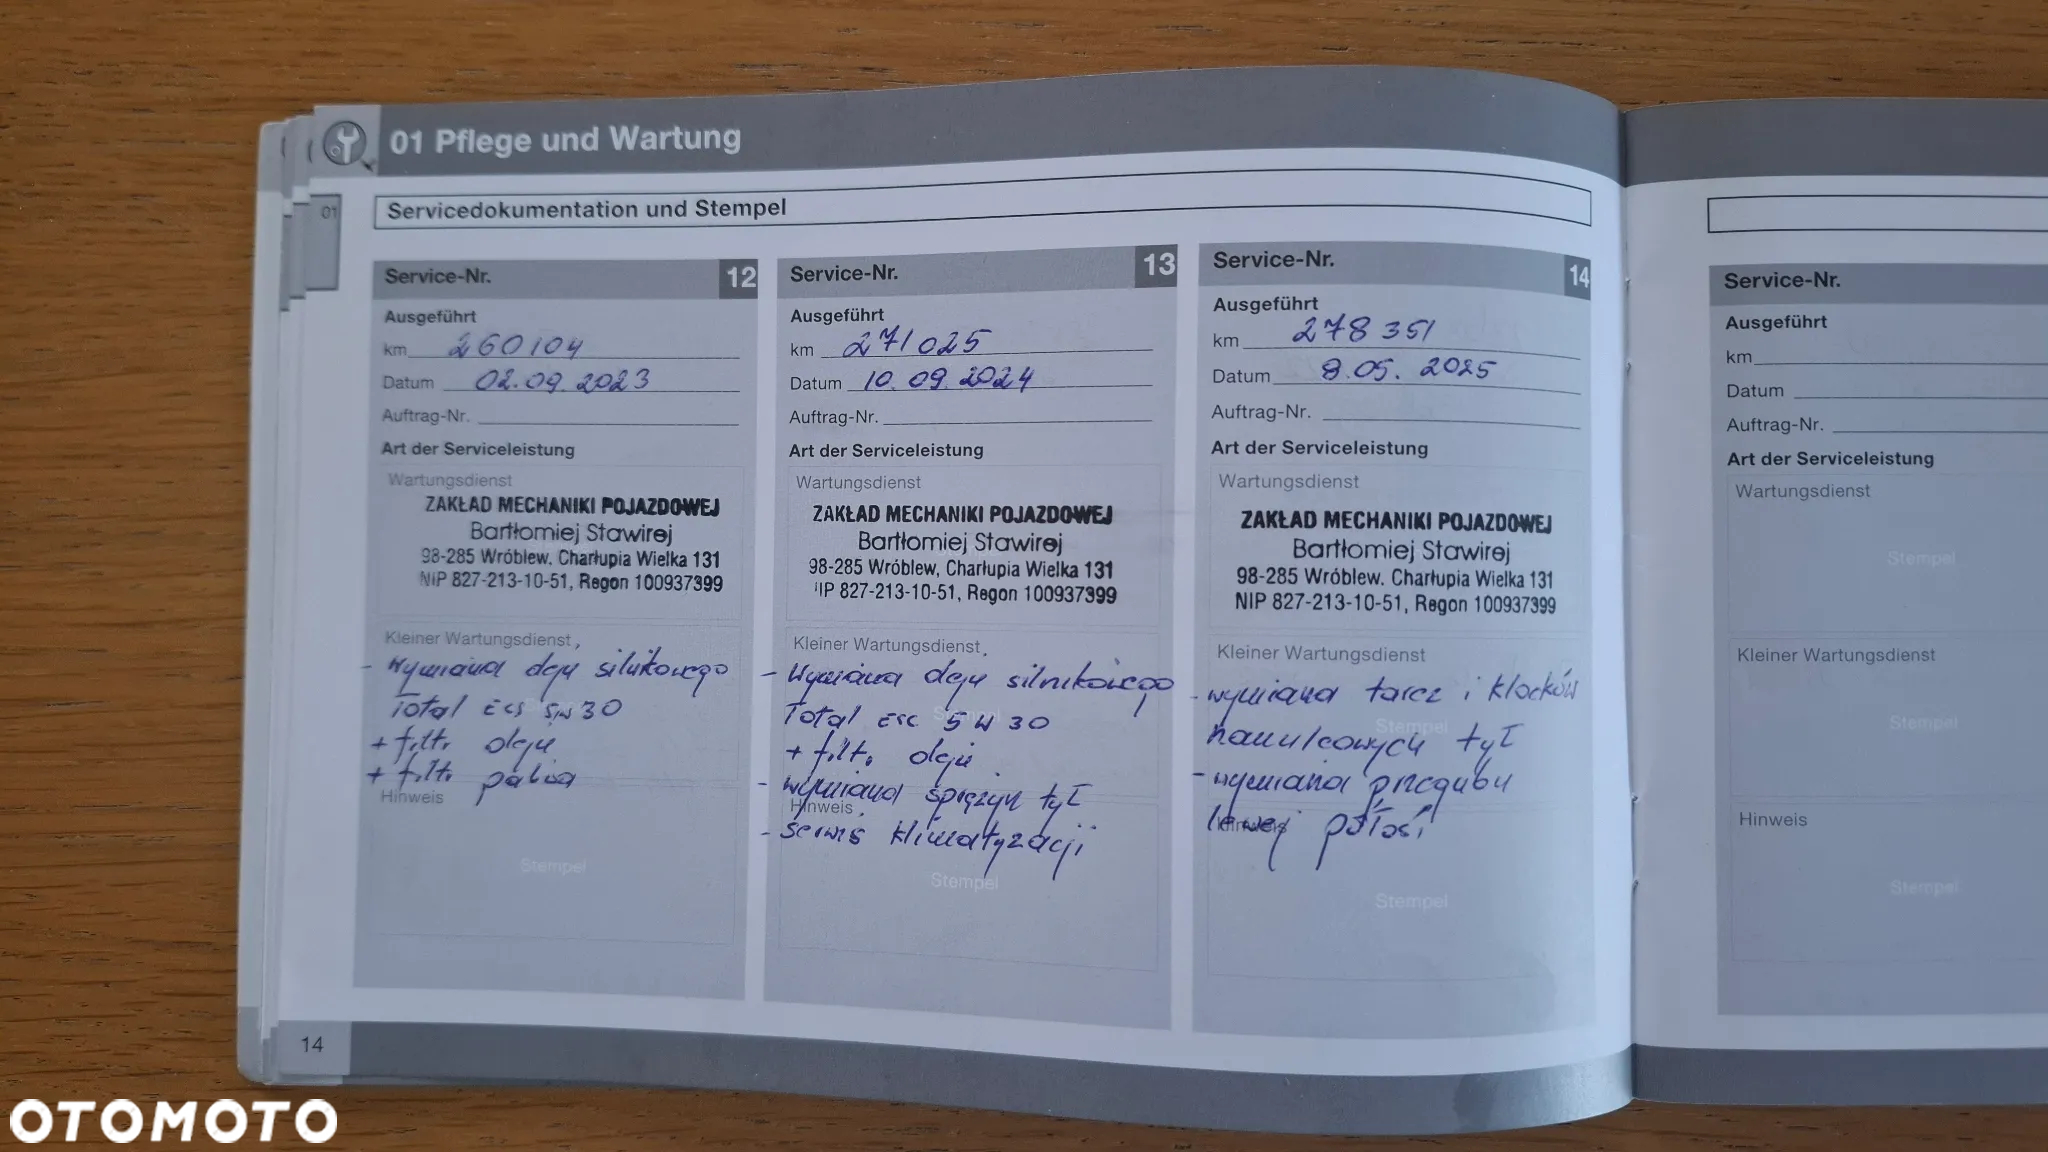 01 Pflege und Wartung
01
Servicedokumentation und Stempel
Service-Nr. 12
Ausgeführt
km 260104
Datum 02.09.2023
Auftrag-Nr.
Art der Serviceleistung
Wartungsdienst
ZAKŁAD MECHANIKI POJAZDOWEJ
Bartłomiej Stawirej
98-285 Wróblew. Charłupia Wielka 131
NIP 827-213-10-51, Regon 100937399
Kleiner Wartungsdienst
- wymiana oleju silnikowego
Total Ecs 5W30
+ filtr oleju
+ filtr paliwa
Hinweis
Stempel
14
Service-Nr. 13
Ausgeführt
km 271025
Datum 10.09.2024
Auftrag-Nr.
Art der Serviceleistung
Wartungsdienst
ZAKŁAD MECHANIKI POJAZDOWEJ
Bartłomiej Stawirej
98-285 Wróblew, Charłupia Wielka 131
IP 827-213-10-51, Regon 100937399
Kleiner Wartungsdienst
- wymiana oleju silnikowego
Total Esc 5W30
+ filtr oleju
- wymiana sprężyn tył
Hinweis
- serwis klimatyzacji
Stempel
Service-Nr. 14
Ausgeführt
km 278351
Datum 8.05.2025
Auftrag-Nr.
Art der Serviceleistung
Wartungsdienst
ZAKŁAD MECHANIKI POJAZDOWEJ
Bartłomiej Stawirej
98-285 Wróblew. Charłupia Wielka 131
NIP 827-213-10-51, Regon 100937399
Kleiner Wartungsdienst
- wymiana tarcz i klocków
Stempel
hamulcowych tył
- wymiana przegubu
lewej półosi
Hinweis
Stempel
Service-Nr.
Ausgeführt
km
Datum
Auftrag-Nr.
Art der Serviceleistung
Wartungsdienst
Stempel
Kleiner Wartungsdienst
Stempel
Hinweis
Stempel
OTOMOTO